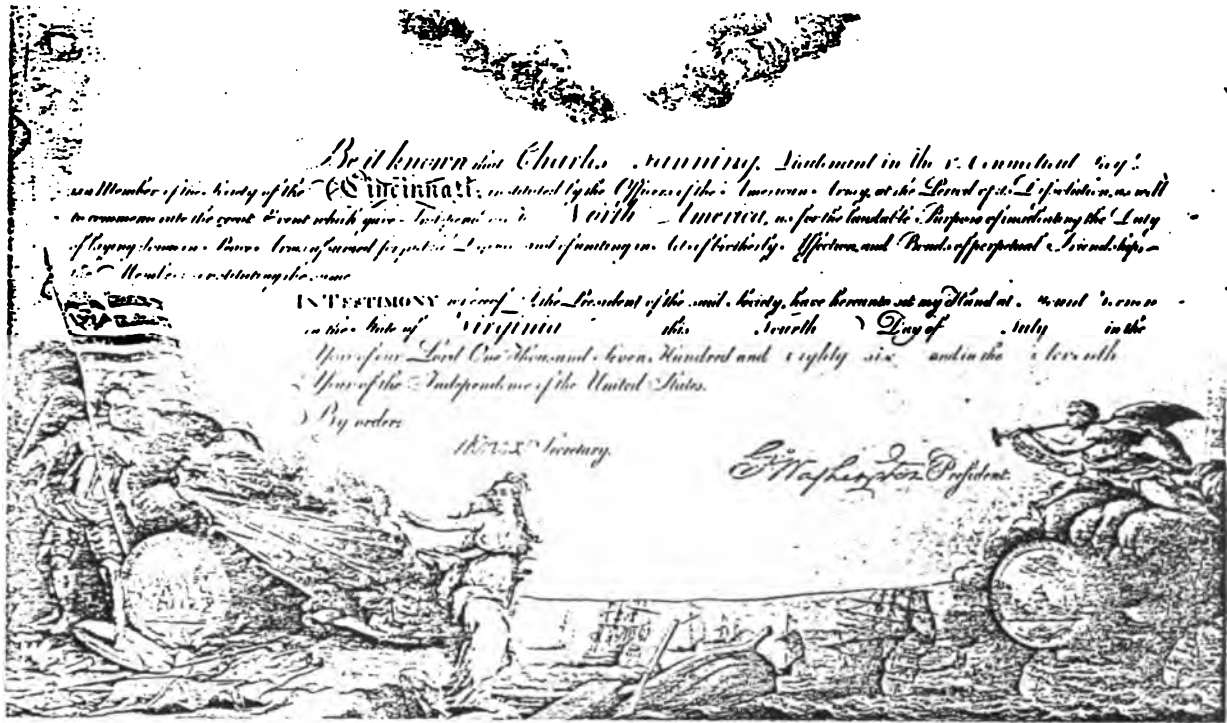 Be it known that Charles Lieutenant in the
Member of the Society of the Cincinnati; instituted by the Officers of the American Army, at the Period of its Dissolution, as well
to commemorate the great Event which gave North America, as for the laudable Purpose of inculcating the Duty
of laying down in Peace Arms assumed for and of uniting in of brotherly Affection, and Bonds of perpetual Friendship,
Members constituting the same
IN TESTIMONY whereof I the President of the said Society, have hereunto set my Hand at Mount Vernon
in the State of Virginia this Fourth Day of July in the
Year of our Lord One Thousand Seven Hundred and eighty six and in the eleventh
Year of the Independence of the United States.
By order
Secretary.
G Washington President.